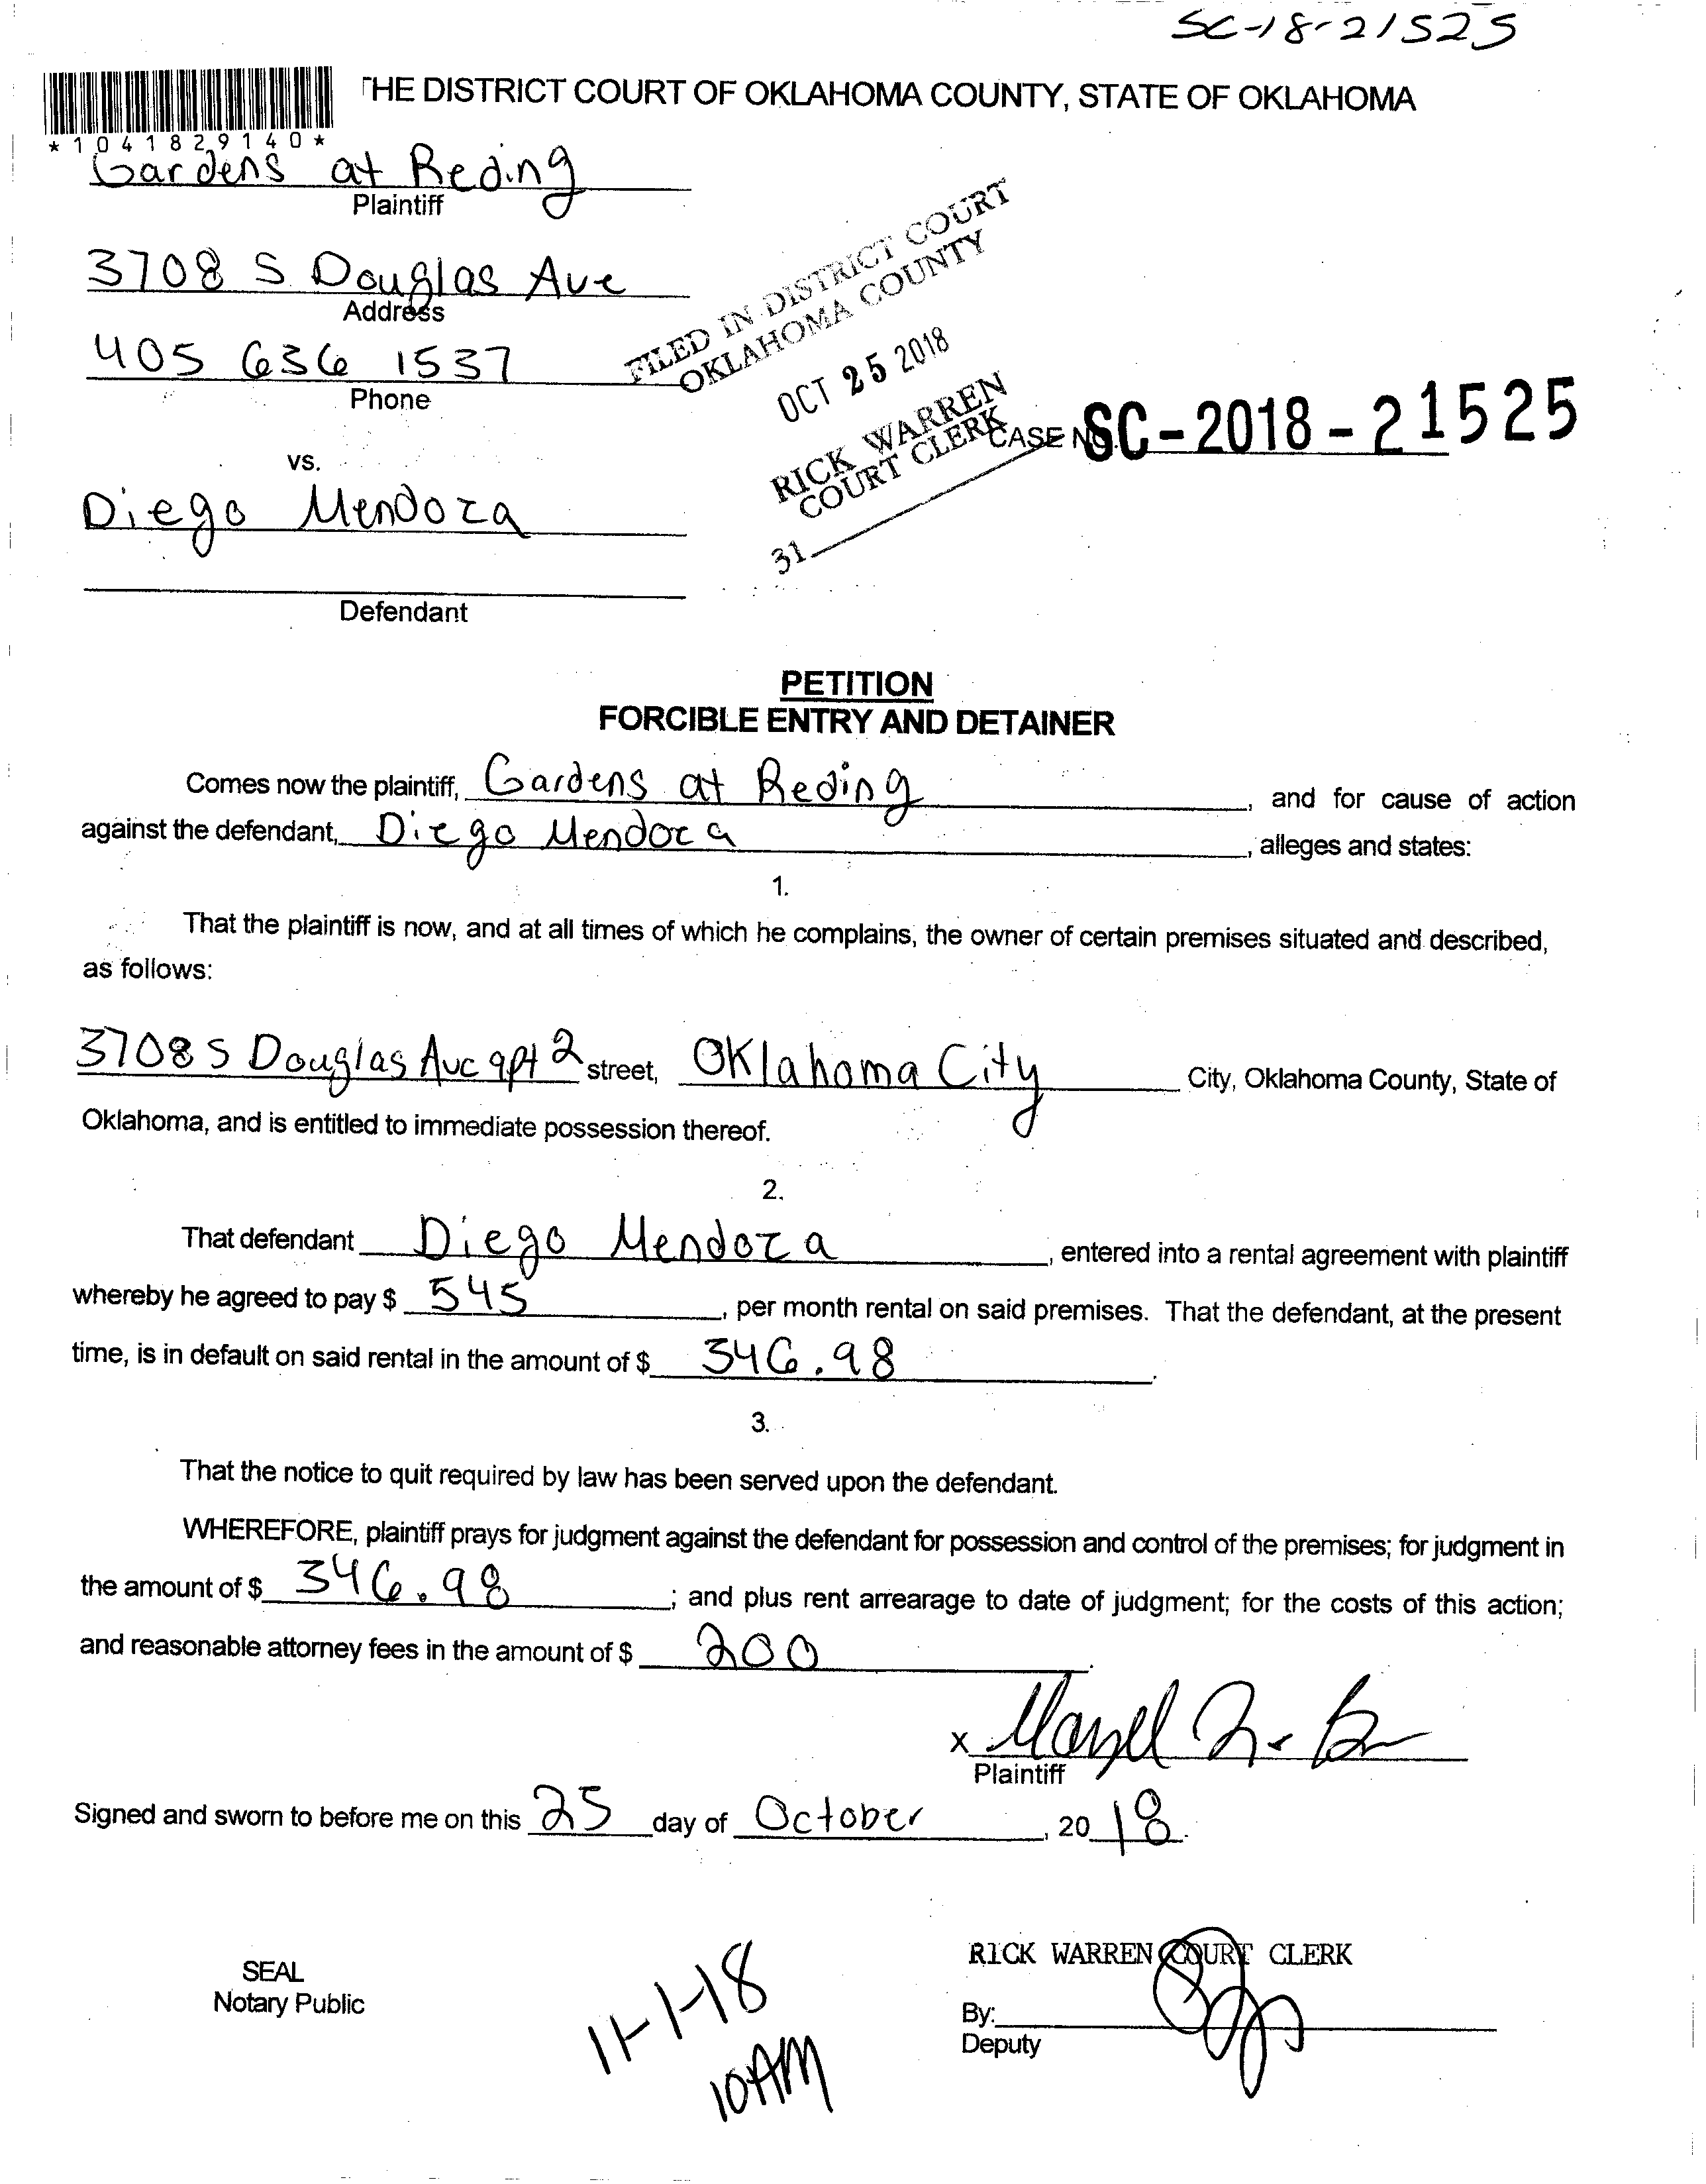 SC-18-21525
THE DISTRICT COURT OF OKLAHOMA COUNTY, STATE OF OKLAHOMA
*1041829140*
Gardens at Reding
Plaintiff
3708 S Douglas Ave
Address
405 636 1537
Phone
FILED IN DISTRICT COURT
OKLAHOMA COUNTY
OCT 25 2018
RICK WARREN
COURT CLERK
31
CASE NO. SC-2018-21525
vs.
Diego Mendoza
Defendant
PETITION
FORCIBLE ENTRY AND DETAINER
Comes now the plaintiff, Gardens at Reding, and for cause of action
against the defendant, Diego Mendoza, alleges and states:
1.
That the plaintiff is now, and at all times of which he complains, the owner of certain premises situated and described,
as follows:
3708 S Douglas Ave apt 2 street, Oklahoma City City, Oklahoma County, State of
Oklahoma, and is entitled to immediate possession thereof.
2.
That defendant Diego Mendoza, entered into a rental agreement with plaintiff
whereby he agreed to pay $ 545, per month rental on said premises. That the defendant, at the present
time, is in default on said rental in the amount of $ 346.98.
3.
That the notice to quit required by law has been served upon the defendant.
WHEREFORE, plaintiff prays for judgment against the defendant for possession and control of the premises; for judgment in
the amount of $ 346.98; and plus rent arrearage to date of judgment; for the costs of this action;
and reasonable attorney fees in the amount of $ 200.
x
Plaintiff
Signed and sworn to before me on this 25 day of October, 20 18.
SEAL
Notary Public
11-1-18
10AM
RICK WARREN COURT CLERK
By:
Deputy